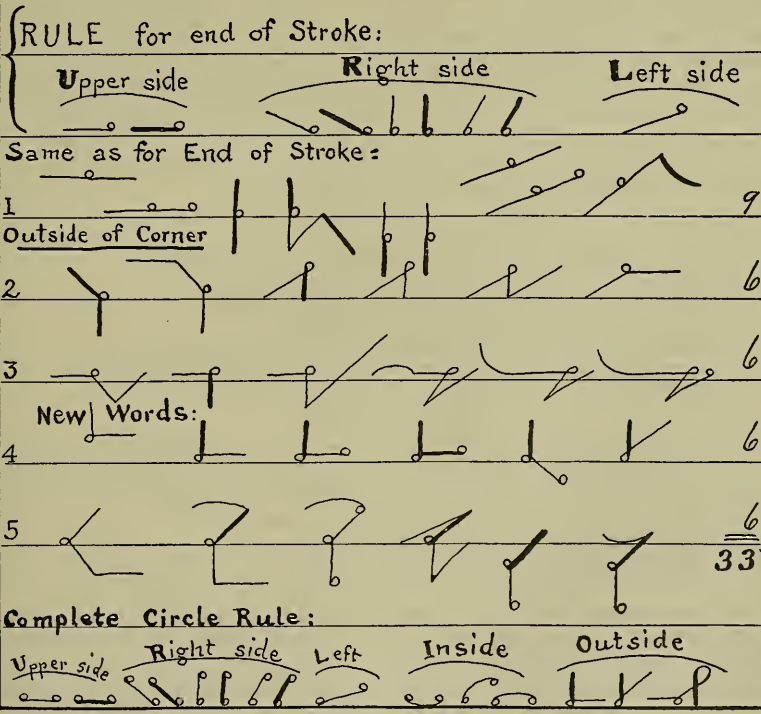 RULE for end of Stroke:
Upper side Right side Left side
Same as for End of Stroke:
1 9
Outside of Corner
2 6
3 6
New Words:
4 6
5 6
33
Complete Circle Rule:
Upper side Right side Left Inside Outside